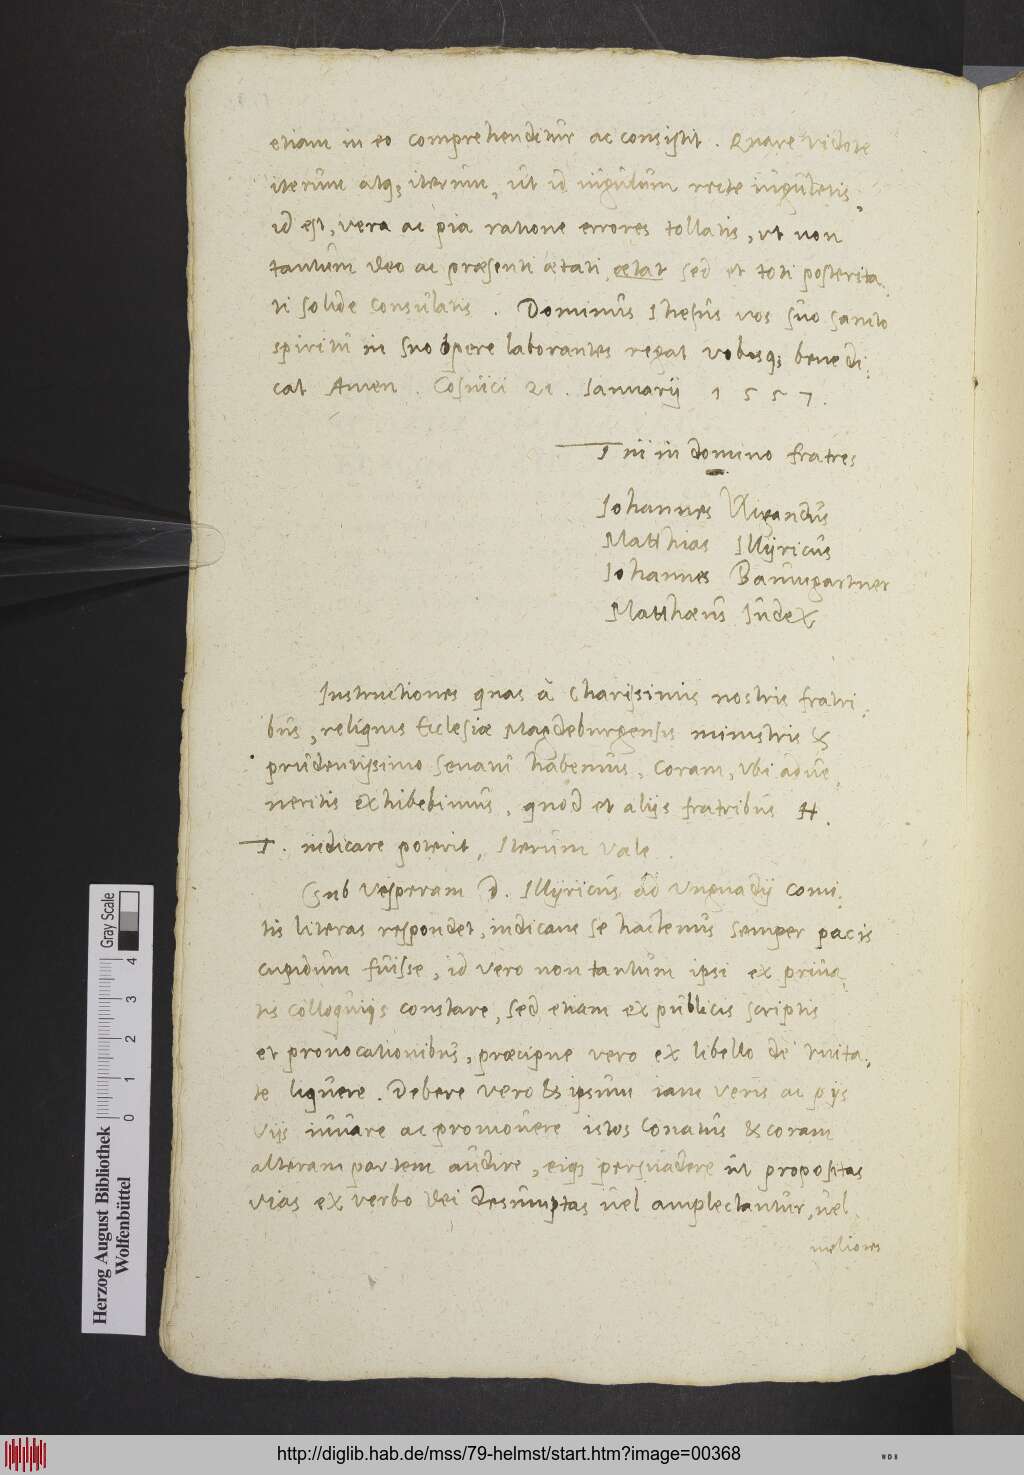 etiam in eo comprehenditur ac consistit. Quare videte
iterum atq; iterum, ut id nigulum recte iuguletis,
id est, vera ac pia ratione errores tollatis, ut non
tantum deo ac præsenti ætati ætat sed et toti posterita,
ti solide consulatis. Dominus Ihesus vos suo sancto
spiritu in suo opere laborantes regat vobisq; benedi,
cat Amen. Cosuici 21. Ianuarij 1557.
T nii in domino fratres
Iohannes Wigandus
Matthias Illyricus
Iohannes Baumgartner
Matthæus Iudex
Instructiones quas à charissimis nostris fratri,
bus, reliquis Ecclesiæ Magdeburgensis ministris &
prudentissimo senatu habemus, coram, ubi adve,
neritis exhibebimus, quod et alijs fratribus H.
T. indicare poterit, Iterum vale.
Sub vesperam D. Illyricus ad Ungnadij comi,
tis literas respondet, indicans se hactenus semper pacis
cupidum fuisse, id vero non tantum ipsi ex priva,
tis colloquijs constare, sed etiam ex publicis scriptis
et provocationibus, præcipue vero ex libello de unita,
te liquere. Debere vero & ipsum iam veris ac pijs
vijs iuvare ac promovere istos conatus & coram
alteram partem audire, eiq; persuadere ut propositas
vias ex verbo dei desumptas vel amplectantur, vel
meliores
Herzog August Bibliothek
Wolfenbüttel
0 1 2 3 4
Gray Scale
http://diglib.hab.de/mss/79-helmst/start.htm?image=00368